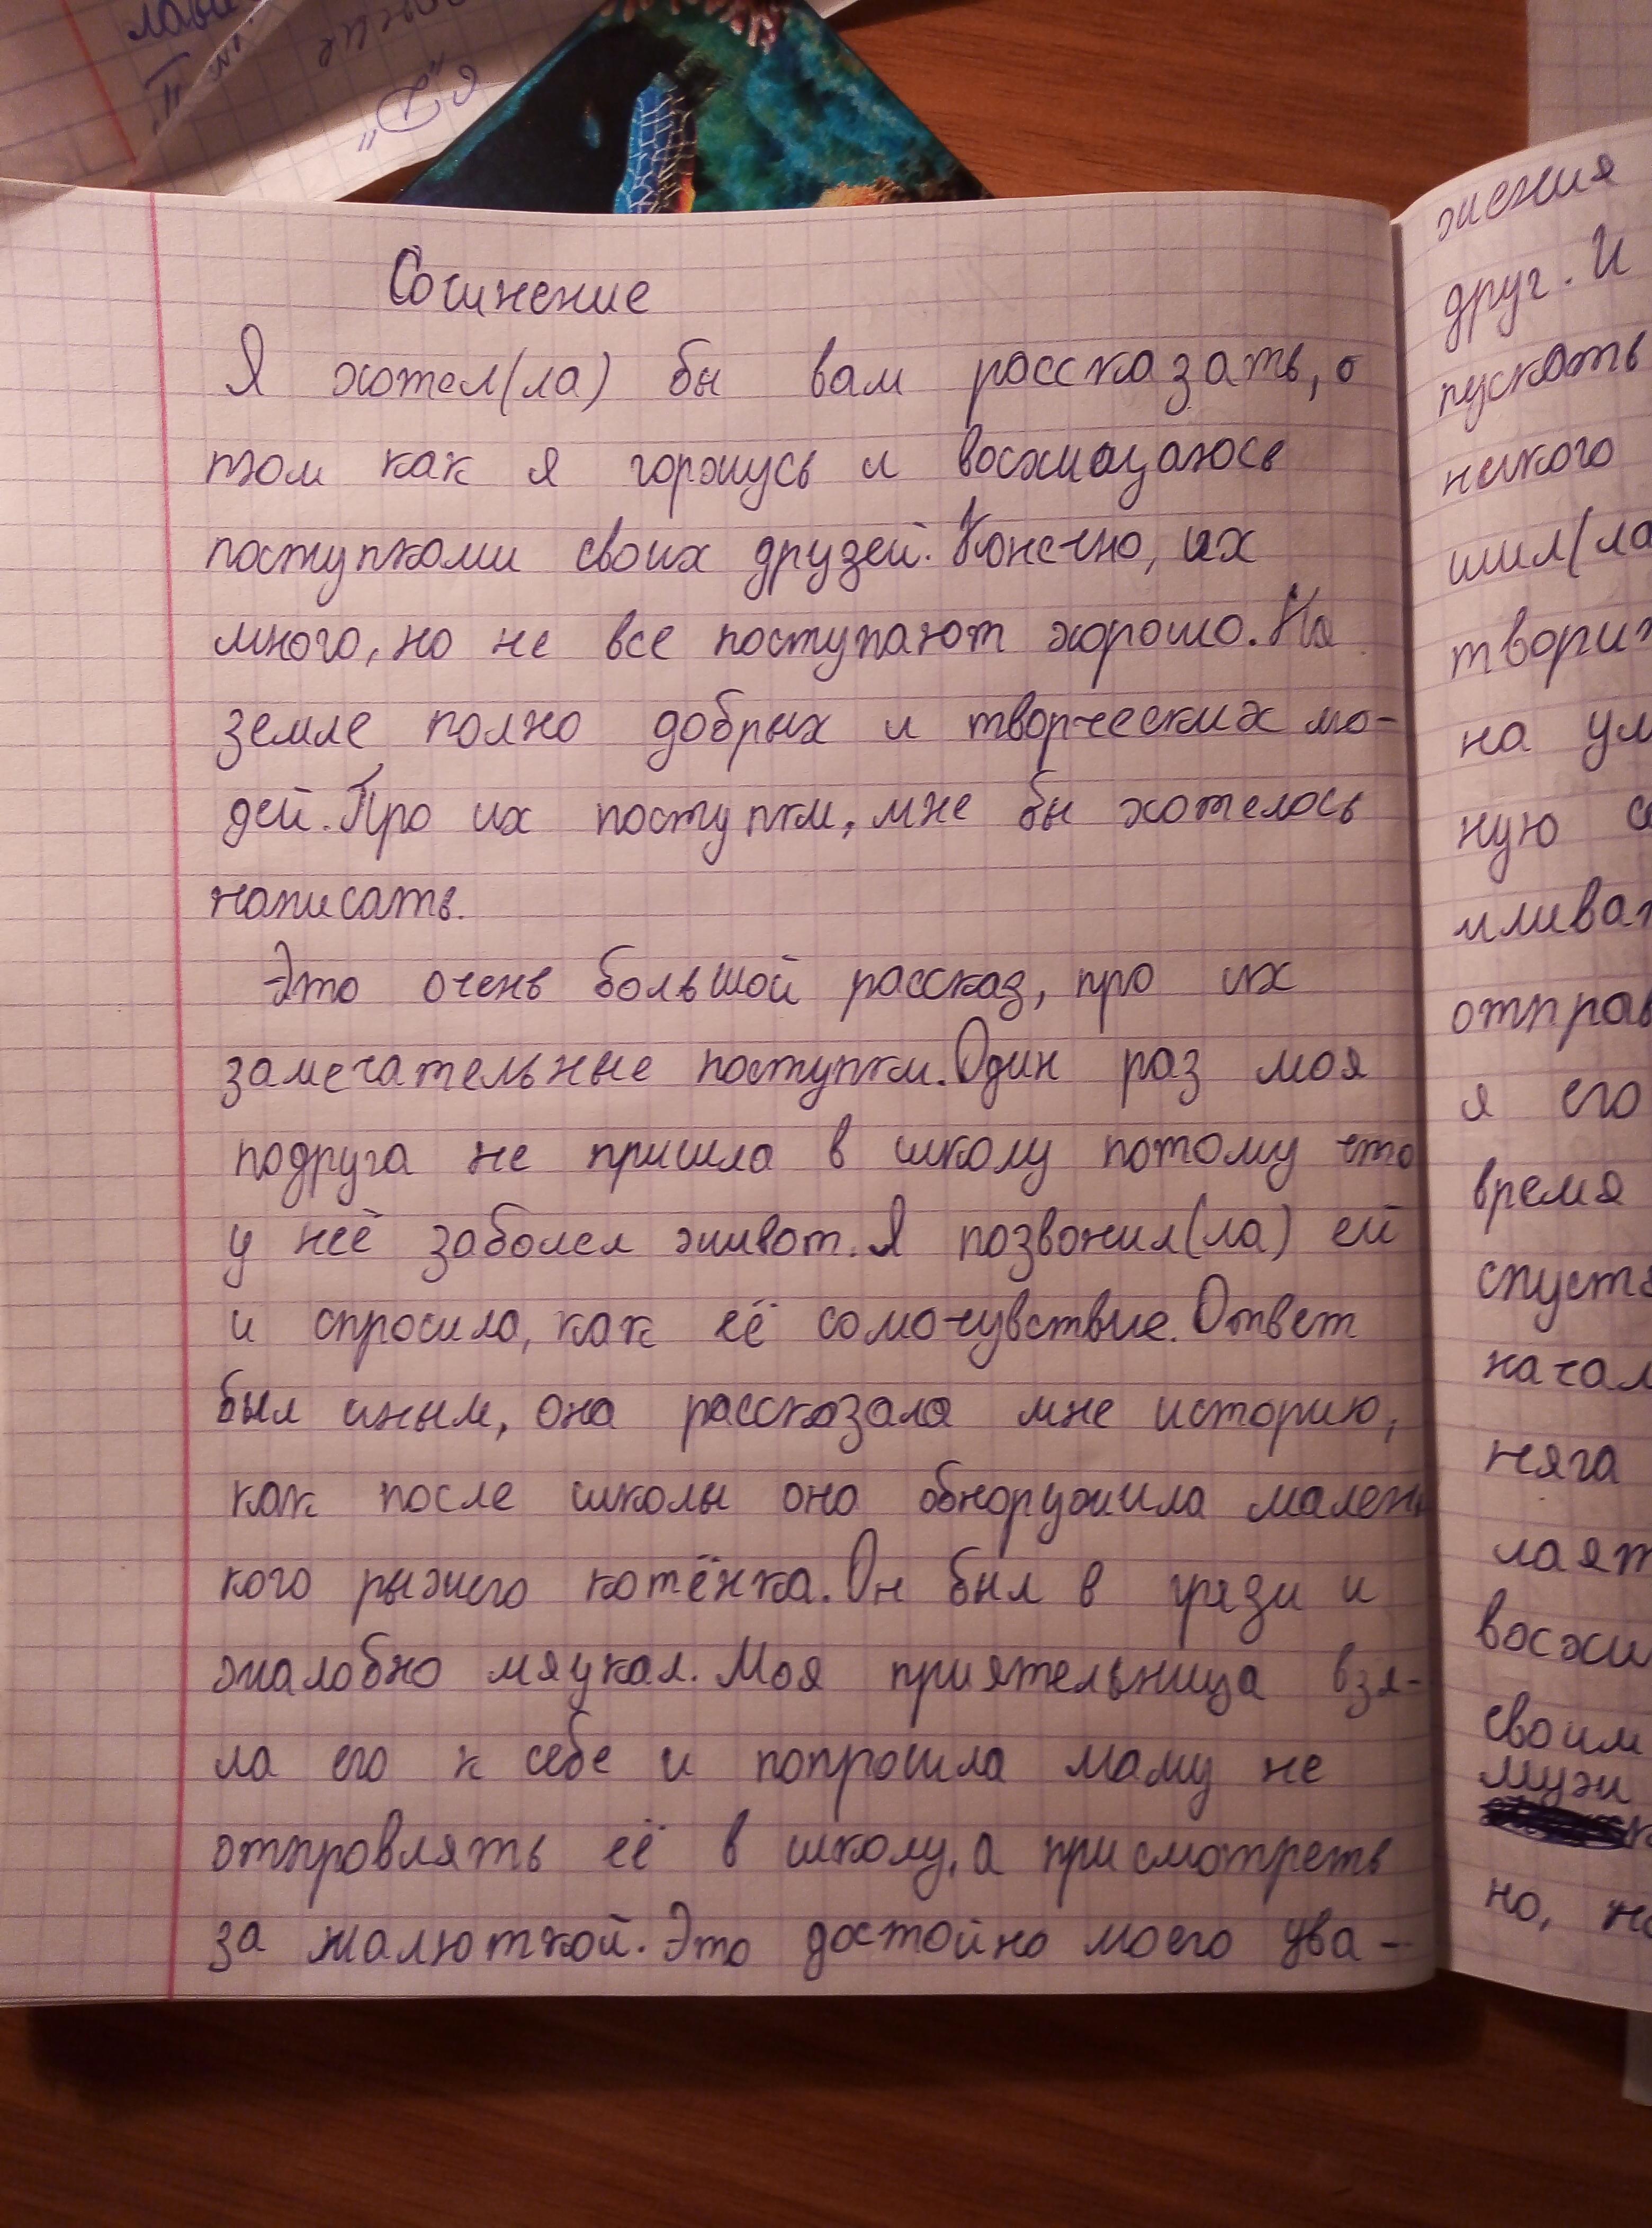 Сочинение
Я хотел(ла) бы вам рассказать, о
том как я горжусь и восхищаюсь
поступками своих друзей. Конечно, их
много, но не все поступают хорошо. На
земле полно добрых и творческих лю-
дей. Про их поступки, мне бы хотелось
написать.
Это очень большой рассказ, про их
замечательные поступки. Один раз моя
подруга не пришла в школу потому что
у неё заболел живот. Я позвонил(ла) ей
и спросила, как её самочувствие. Ответ
был иным, она рассказала мне историю,
как после школы она обноружила малень
кого рыжего котёнка. Он был в грязи и
жалобно мяукал. Моя приятельница взя-
ла его к себе и попросила маму не
отправлять её в школу, а присмотреть
за малюткой. Это достойно моего ува-
жения
друг. И
пускать
некого
шил(ла
твори
на ум
ную
отправ
я его
время
начал
няга
лаят
восхи
своим
мужи
но,